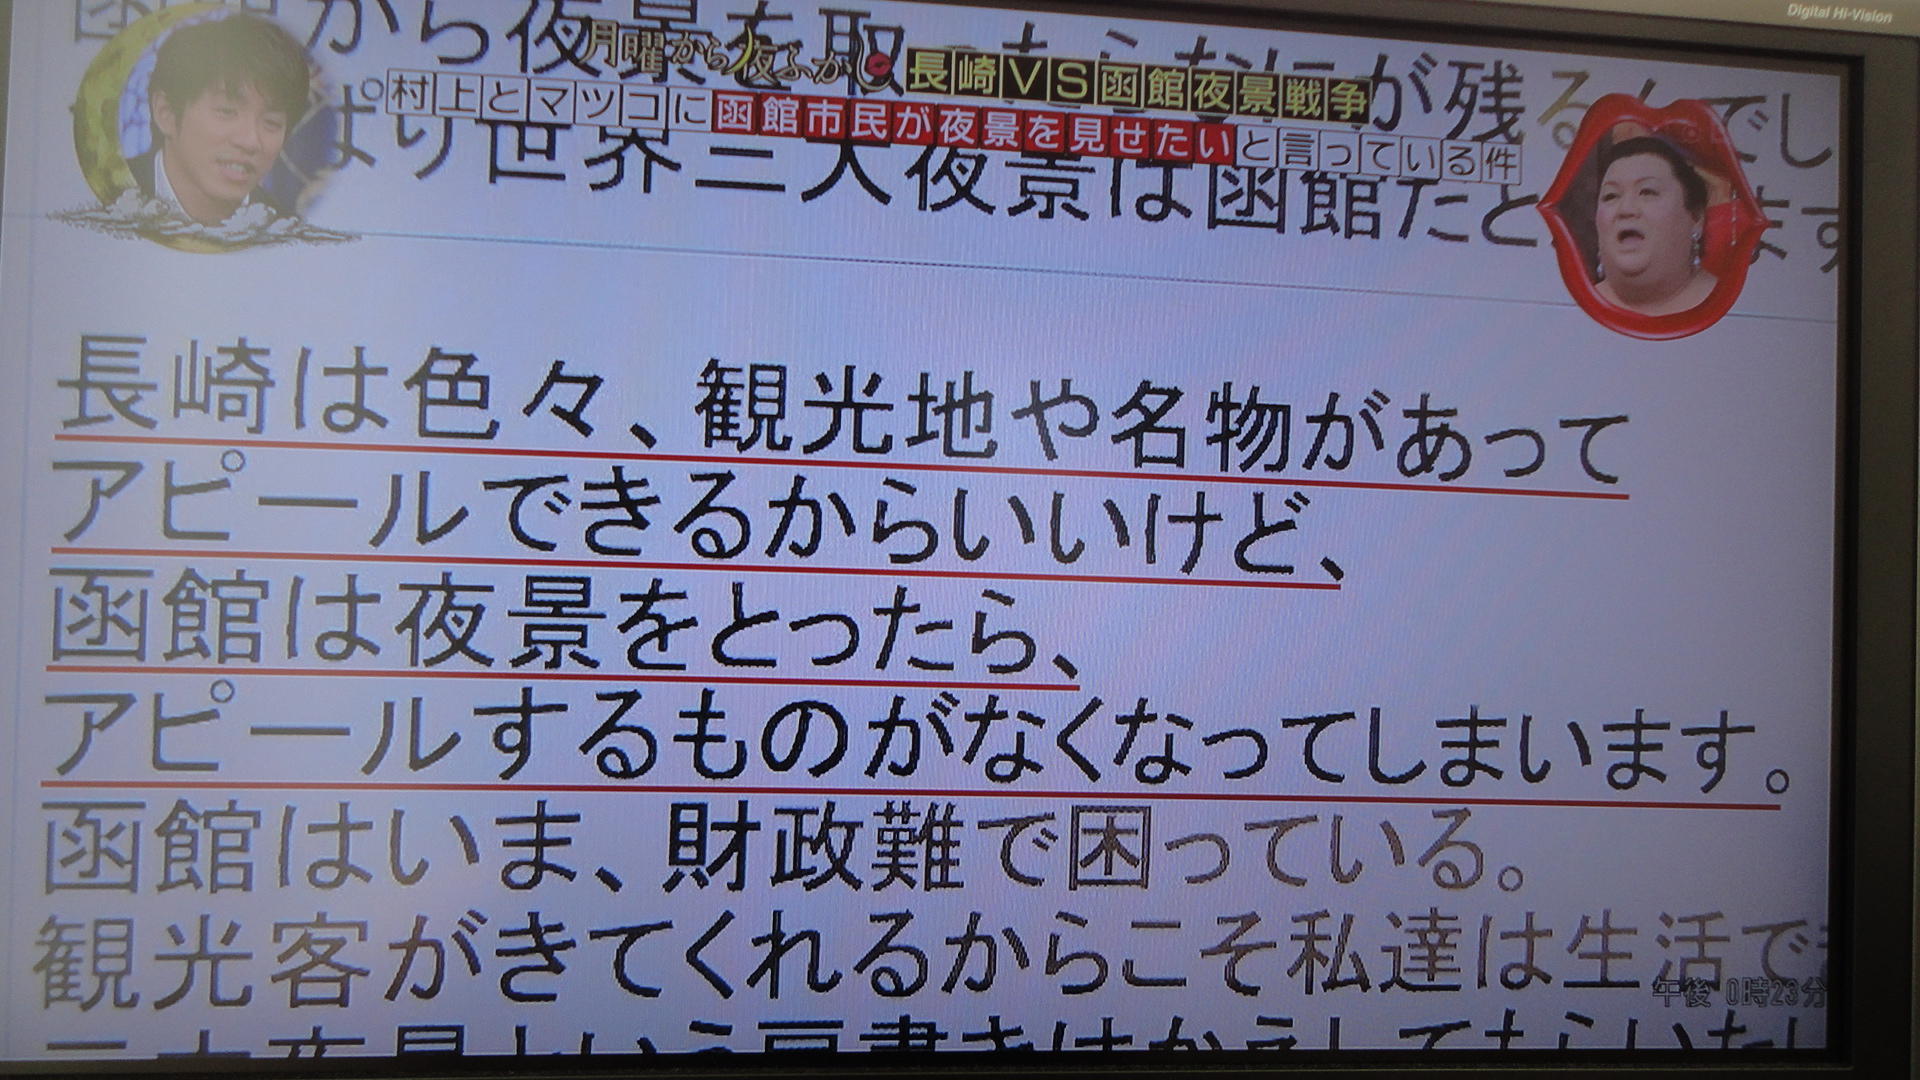 Digital Hi-Vision
月曜から夜ふかし
長崎VS函館夜景戦争
村上とマツコに函館市民が夜景を見せたいと言っている件
から夜景を
が残るんでし
ぱり世界三大夜景は函館だと
ます
長崎は色々、観光地や名物があって
アピールできるからいいけど、
函館は夜景をとったら、
アピールするものがなくなってしまいます。
函館はいま、財政難で困っている。
観光客がきてくれるからこそ私達は生活で
午後 0時23分
三大夜景という肩書きはかえしてもらいたい